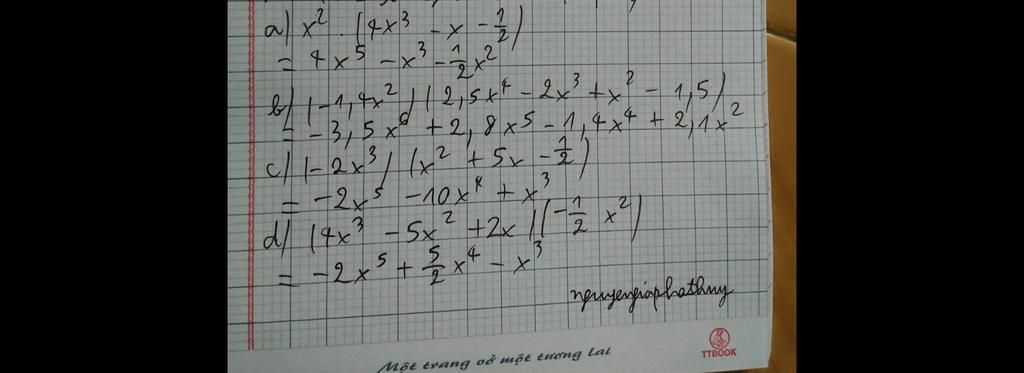 a) x² . (4x³ - x - 1/2)
= 4x⁵ - x³ - 1/2x²
b) (-1,4x²)(2,5x⁴ - 2x³ + x² - 1,5)
= -3,5x⁶ + 2,8x⁵ - 1,4x⁴ + 2,1x²
c) (-2x³) (x² + 5x - 1/2)
= -2x⁵ - 10x⁴ + x³
d) (4x³ - 5x² + 2x)(-1/2 x²)
= -2x⁵ + 5/2x⁴ - x³
nguyengiaphathuy
Một trang vở một tương lai
TTBOOK